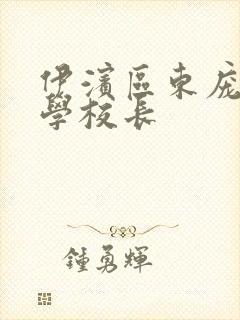 伊濱區東庞
學校長
鍾勇輝